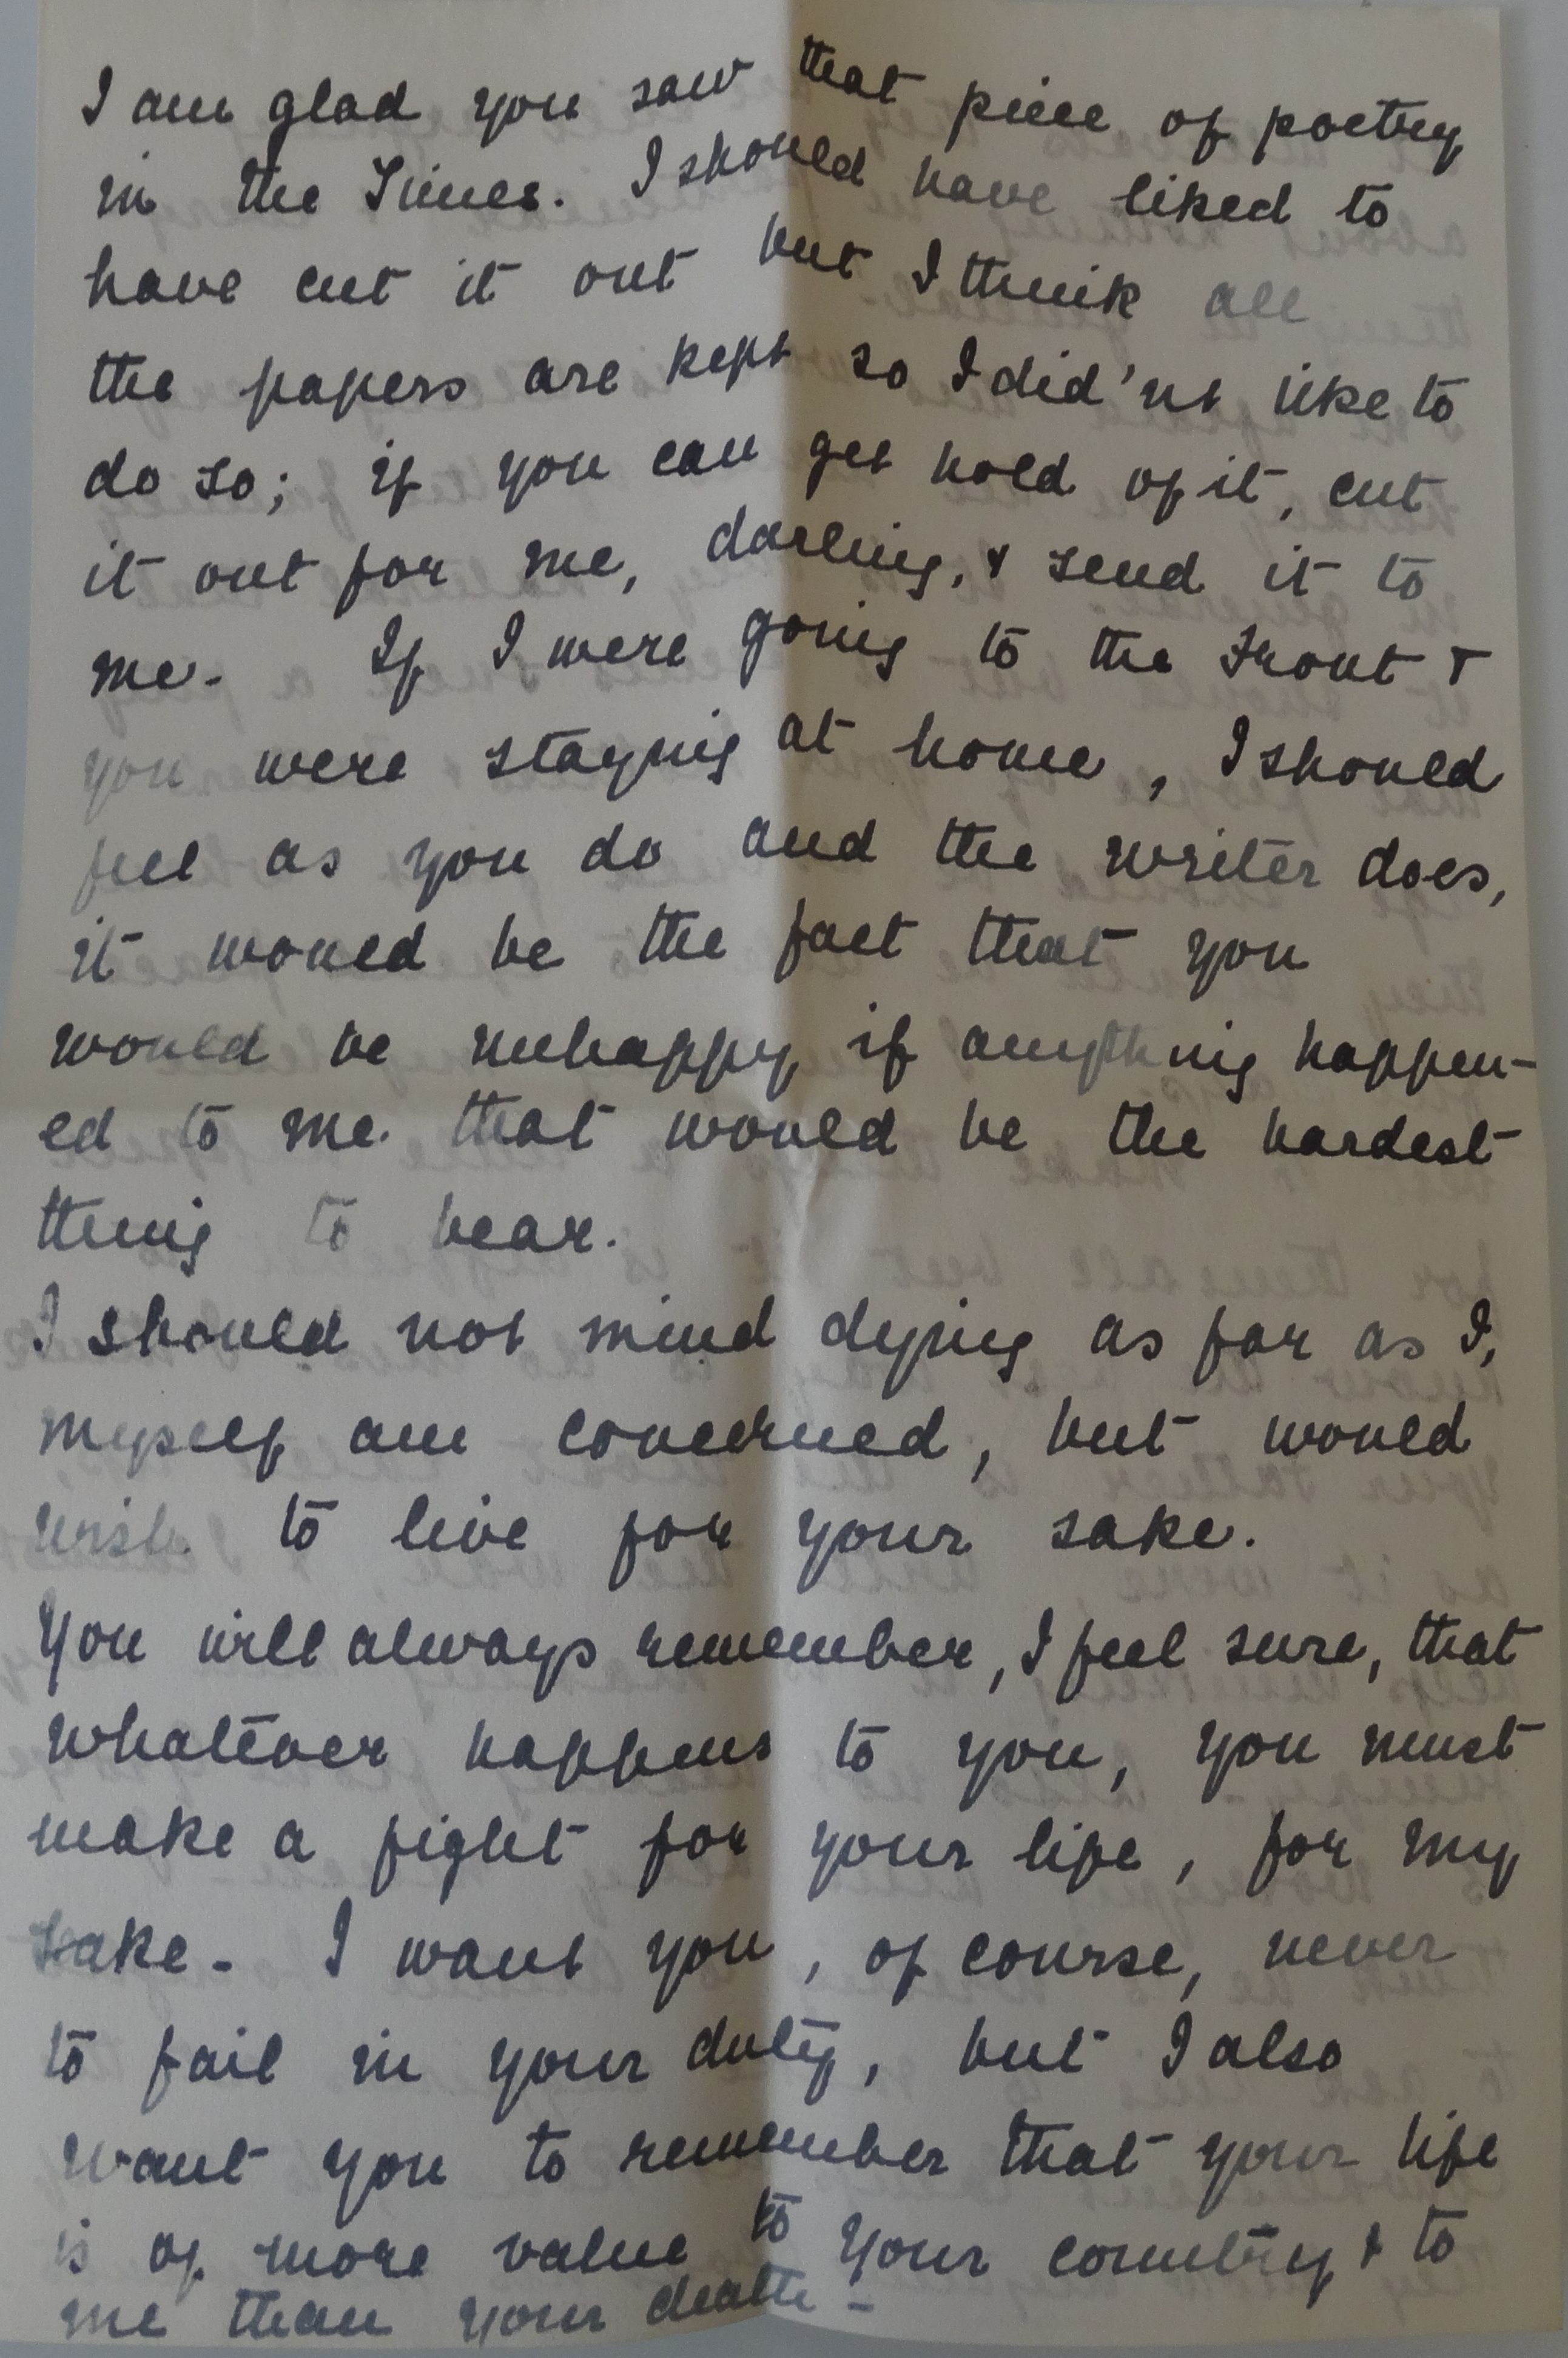 I am glad you saw that piece of poetry
in the Times. I should have liked to
have cut it out but I think all
the papers are kept so I did'nt like to
do so; if you can get hold of it, cut
it out for me, darling, & send it to
me. If I were going to the Front &
you were staying at home, I should
feel as you do and the writer does,
it would be the fact that you
would be unhappy if anything happen-
ed to me that would be the hardest
thing to bear.
I should not mind dying as far as I,
myself am concerned, but would
wish to live for your sake.
You will always remember, I feel sure, that
whatever happens to you, you must
make a fight for your life, for my
sake. I want you, of course, never
to fail in your duty, but I also
want you to remember that your life
is of more value to your country & to
me than your death -